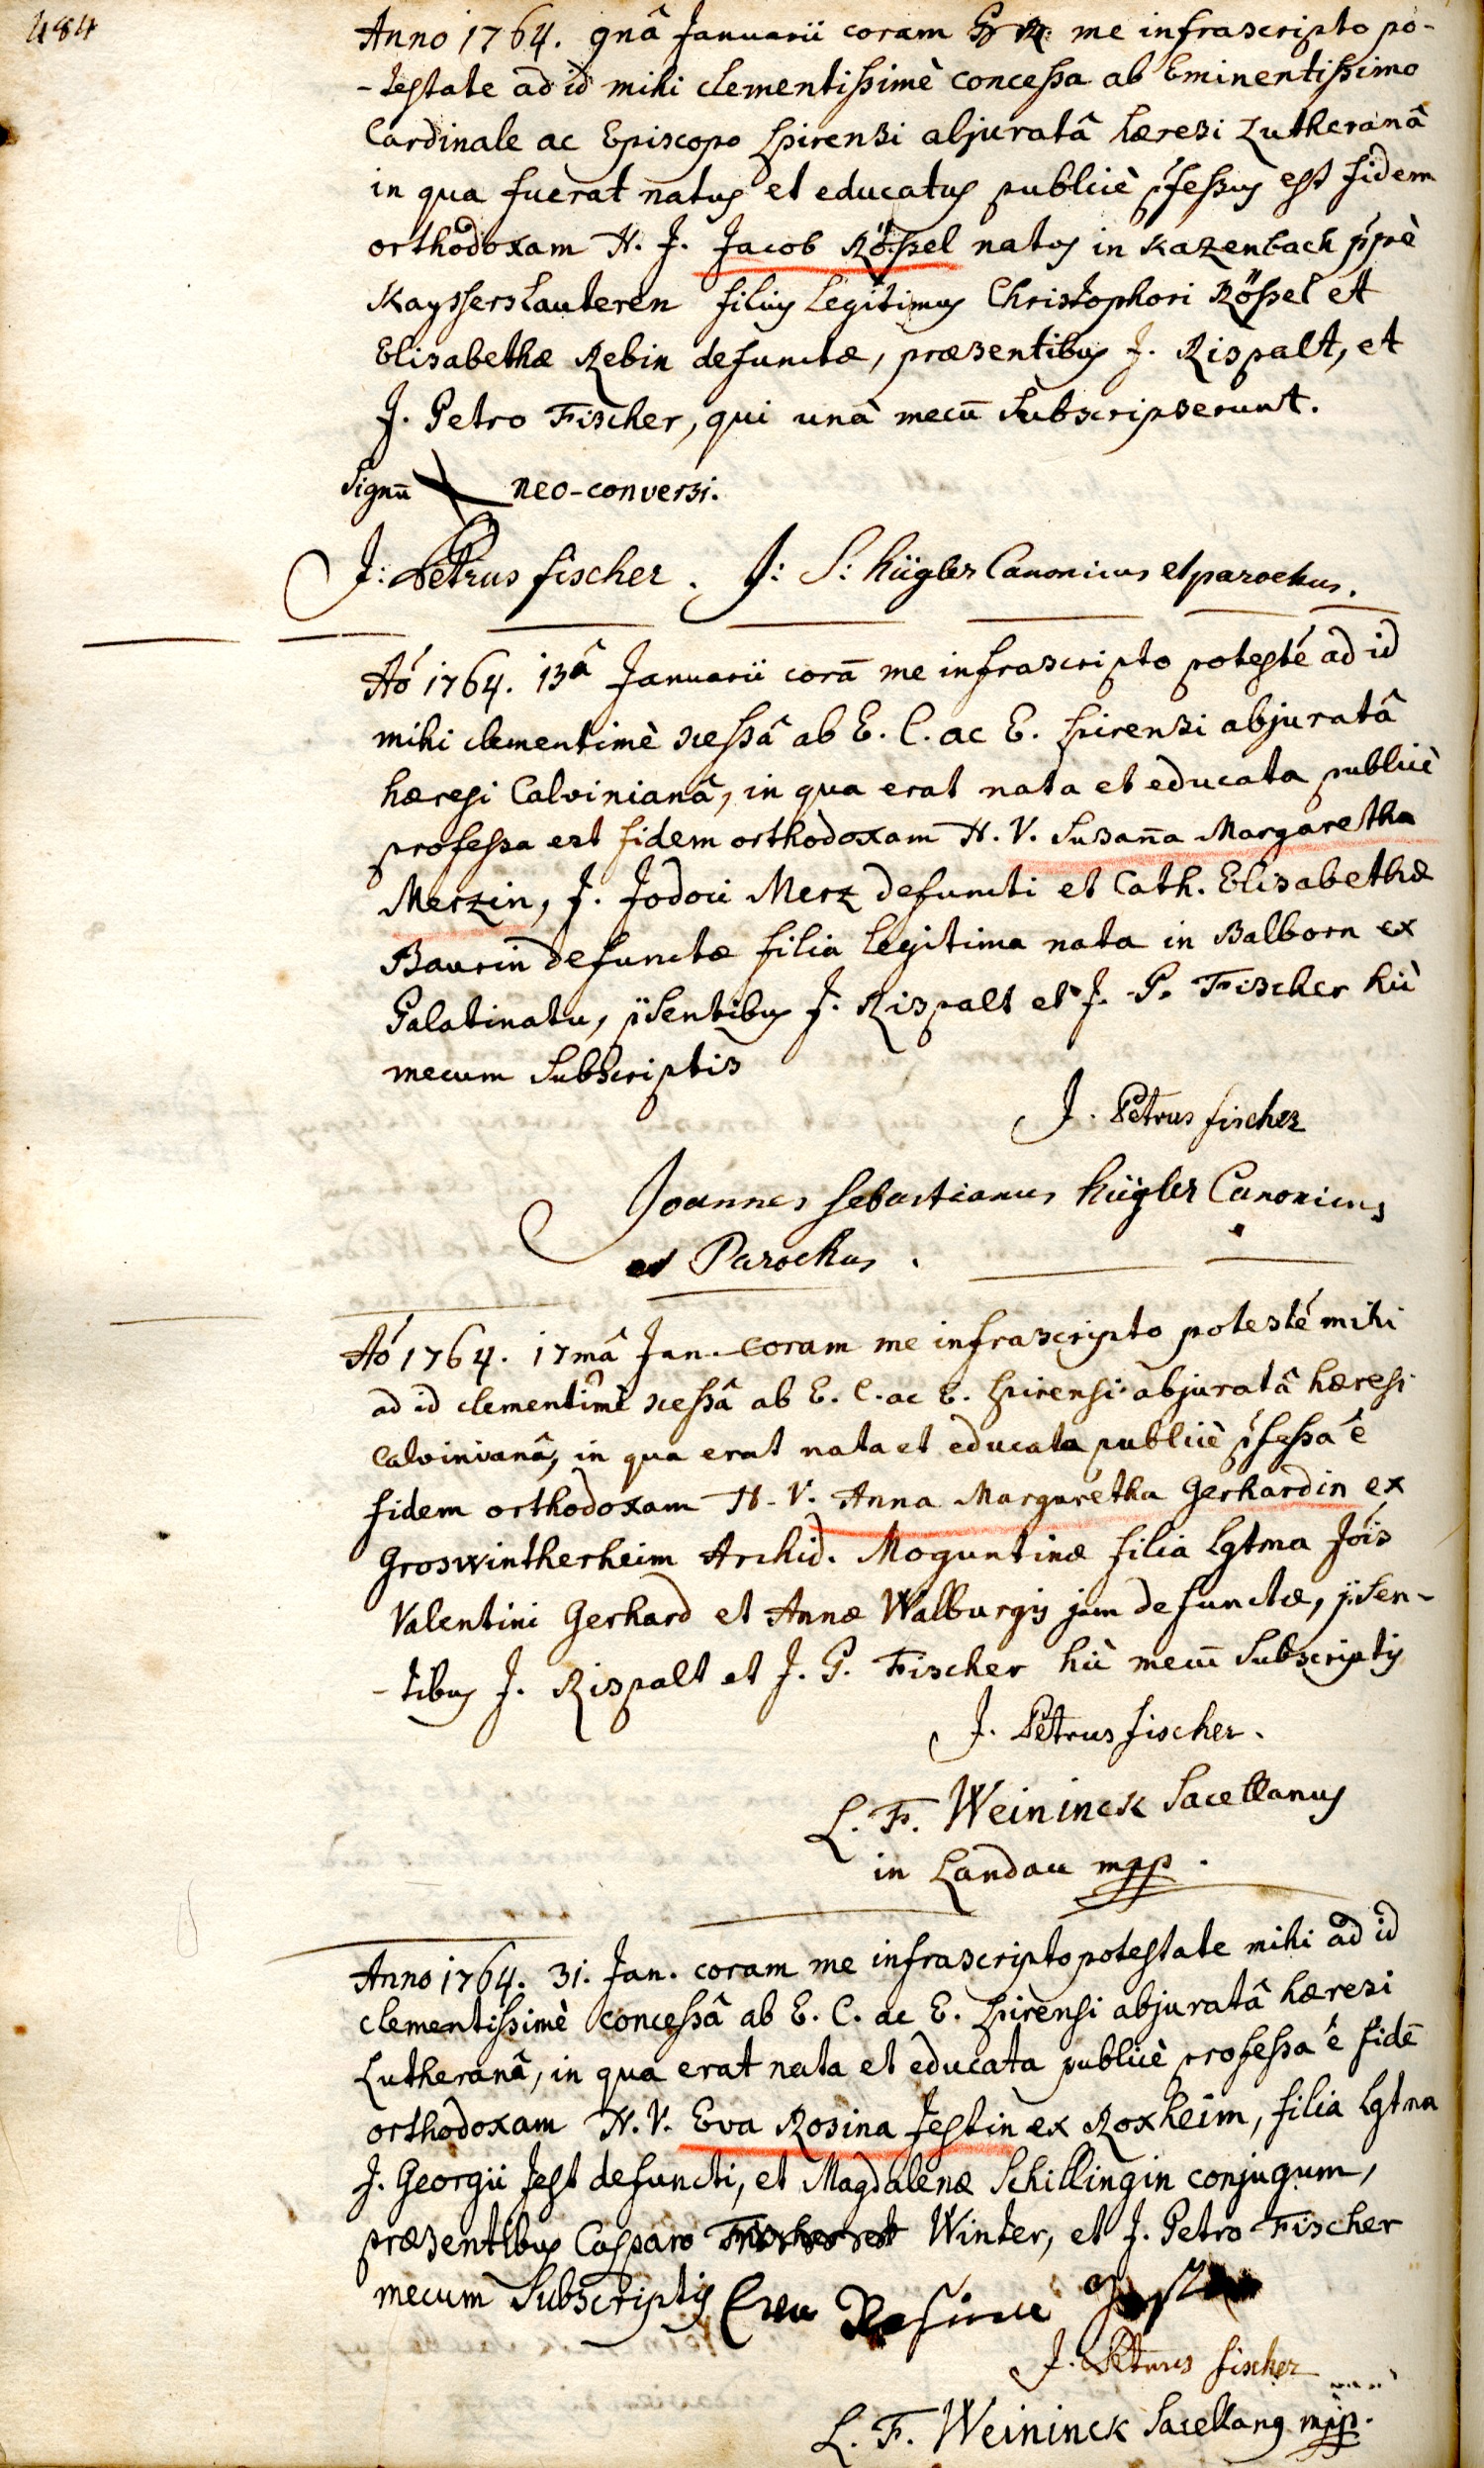 484
Anno 1764. 9nâ Januarii coram me infrascripto po-
-testate ad id mihi clementissimè concessa ab Eminentissimo
Cardinale ac Episcopo Spirensi abjuratâ hæresi Lutheranâ
in qua fuerat natus et educatus publicè pfessus est fidem
orthodoxam H. J. Jacob Rössel natus in Kazenbach ppè
Kaysserslauteren filius legitimus Christophori Rössel et
Elisabethæ Rebin defunctæ, præsentibus J. Rispalt, et
J. Petro Fischer, qui unâ mecū subscripserunt.
Signū neo-conversi.
J: Petrus fischer. J: S: Hügler Canonicus et parochus.
Aō 1764. 13â Januarii corā me infrascripto potesté ad id
mihi clementimè ɔcessâ ab E. C. ac E. Spirensi abjuratâ
hæresi Calvinianâ, in qua erat nata et educata publicè
professa est fidem orthodoxam H. V. Susaña Margaretha
Merzin, J. Jodoci Merz defuncti et Cath. Elisabethæ
Baurin defunctæ filia legitima nata in Balborn ex
Palatinatu, p̈sentibus J. Rispalt et J. P. Fischer hìc
mecum subscriptis
J. Petrus fischer
Joannes Sebastianus Hügler Canonicus
et Parochus.
Aó 1764. 17mâ Jan. coram me infrascripto potesté mihi
ad id clementimè ɔcessâ ab E. C. ac E. Spirensi abjuratâ hæresi
Calvinianâ, in qua erat nata et educata publicè pfessa ê
fidem orthodoxam H. V. Anna Margaretha Gerhardin ex
Groswintherheim Archid. Moguntinæ filia lgtma Jōis
Valentini Gerhard et Annæ Walburgis jam defunctæ, p̈sen-
-tibus J. Rispalt et J. P. Fischer hìc mecū subscriptis
J. Petrus fischer.
L. F. Weininck Sacellanus
in Landau mpp.
Anno 1764. 31. Jan. coram me infrascripto potestate mihi ad id
clementissimè concessâ ab E. C. ac E. Spirensi abjuratâ hæresi
Lutheranâ, in qua erat nata et educata publicè professa ê fidē
orthodoxam H. V. Eva Rosina Jestin ex Roxheim, filia lgtma
J. Georgii Jest defuncti, et Magdalenæ Schillingin conjugum,
præsentibus Casparo Winter, et J. Petro Fischer
mecum subscriptis Eva Rosina
J. Petrus fischer
L. F. Weininck Sacellanus mpp.